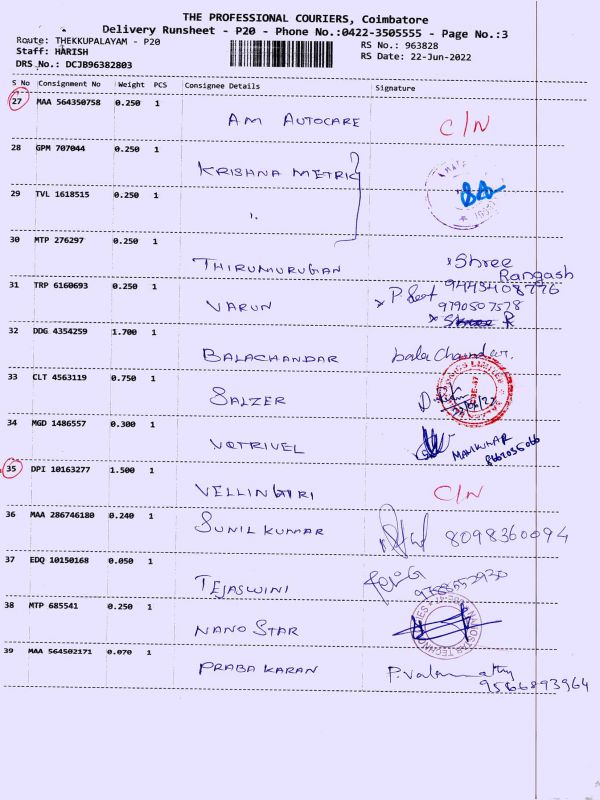 THE PROFESSIONAL COURIERS, Coimbatore
Delivery Runsheet - P20 - Phone No.:0422-3505555 - Page No.:3
Route: THEKKUPALAYAM - P20
RS No.: 963828
Staff: HARISH
RS Date: 22-Jun-2022
DRS No.: DCJB96382803
S No Consignment No Weight PCS Consignee Details Signature
27 MAA 564350758 0.250 1
AM AUTOCARE C/N
28 GPM 707044 0.250 1
KRISHNA METRIC
29 TVL 1618515 0.250 1
30 MTP 276297 0.250 1
THIRUMURUGAN Shree Rangash
9445408776
31 TRP 6160693 0.250 1
VARUN
9790507578
32 DDG 4354259 1.700 1
BALACHANDAR balachandar.
33 CLT 4563119 0.750 1
SALZER
34 MGD 1486557 0.300 1
VETRIVEL MANIKUMAR
35 DPI 10163277 1.500 1
VELLINGIRI C/N
36 MAA 286746180 0.240 1
SUNIL KUMAR 8098360094
37 EDQ 10150168 0.050 1
TEJASWINI
38 MTP 685541 0.250 1
NANO STAR
39 MAA 564502171 0.070 1
PRABA KARAN P. Valarmathy
9566893964